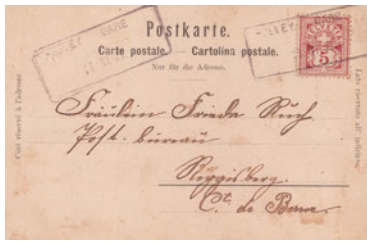 Postkarte.
Carte postale. — Cartolina postale.
Nur für die Adresse.
Côté réservé à l'adresse
Lato riservato all' indirizzo
5
Fräulein Frieda
Post-bureau
Riggisberg.
Ct. de Berne.